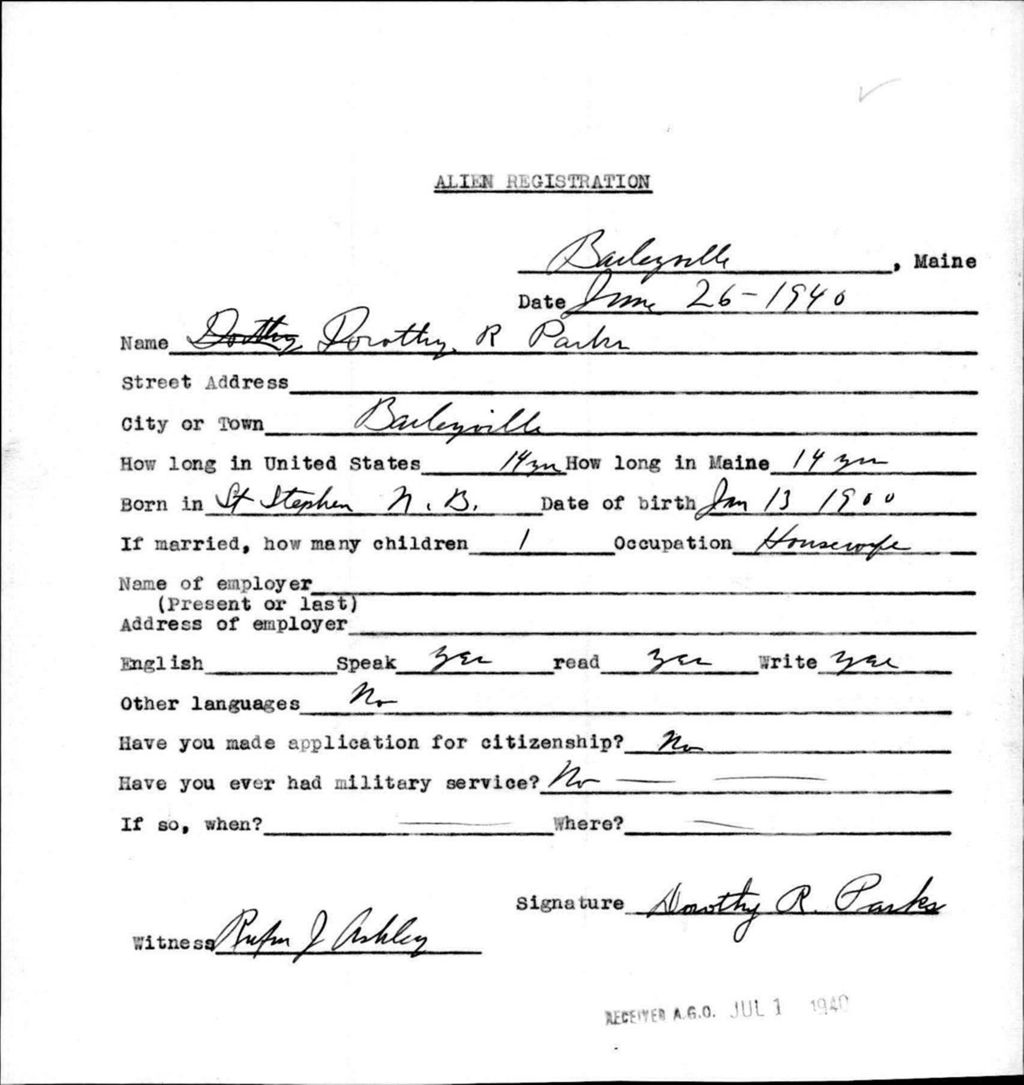 ALIEN REGISTRATION
Baileyville, Maine
Date June 26-1940
Name Dorothy Dorothy R Parks
Street Address
City or Town Baileyville
How long in United States 14 yrs How long in Maine 14 yrs
Born in St Stephen N. B. Date of birth Jan 13 1900
If married, how many children 1 Occupation Housewife
Name of employer
(Present or last)
Address of employer
English Speak yes read yes Write yes
Other languages No
Have you made application for citizenship? No
Have you ever had military service? No
If so, when? Where?
Signature Dorothy R. Parks
Witness Rufus J Ashley
RECEIVED A.G.O. JUL 1 1940